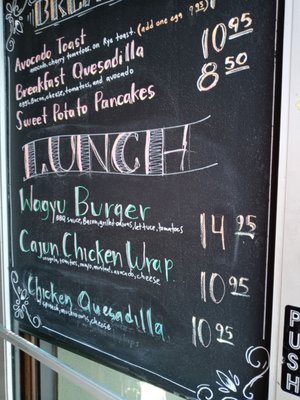 Avocado Toast
avocado, cherry tomatoes, on Rye toast. (add one egg
10 95
Breakfast Quesadilla
eggs, Bacon, cheese, tomatoes, and avocado
8 50
Sweet Potato Pancakes
LUNCH
Wagyu Burger
BBQ sauce, Bacon, grilled onions, lettuce, tomatoes
14 95
Cajun Chicken Wrap
avocado, cheese
10 95
Chicken Quesadilla
spinach, mushrooms, cheese
10 95
PUSH